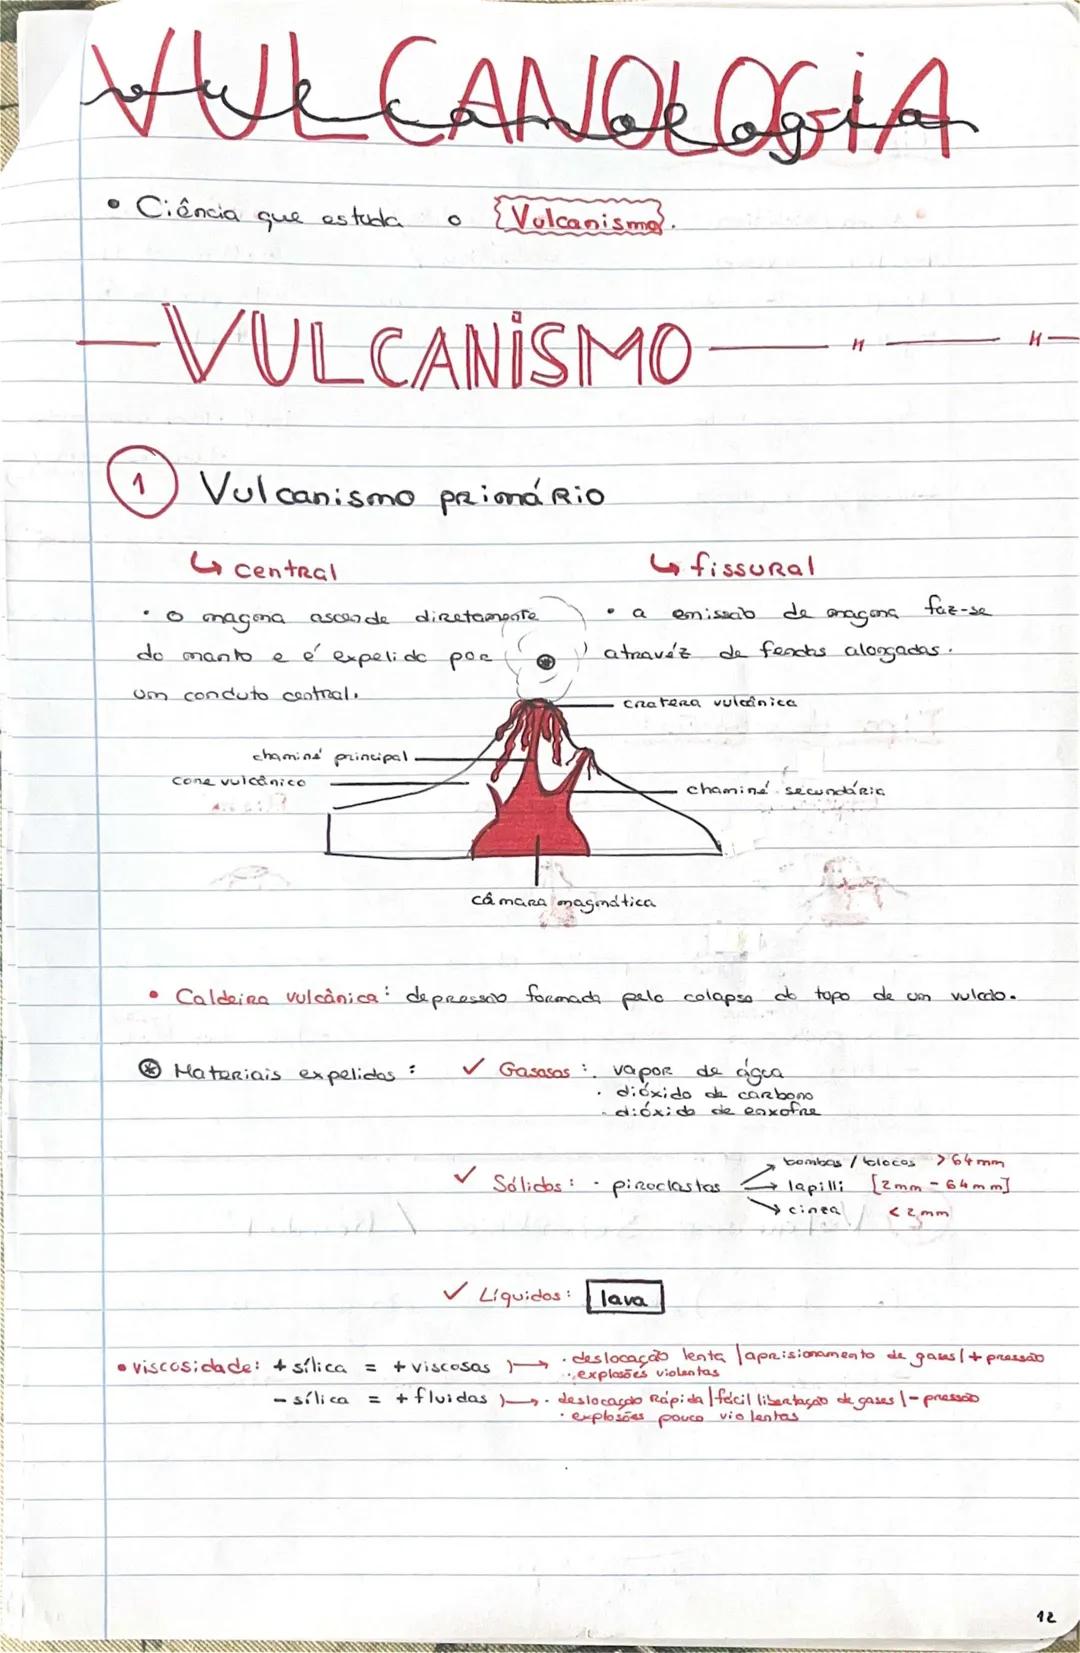 VULCANOLOGIA
vulcanologia
• Ciência que estuda o Vulcanismo.
VULCANISMO
1 Vulcanismo primário
↳ central
↳ fissural
• o magma ascende diretamente
do manto e é expelido por
um conduto central.
• a emissão de magma faz-se
atravéz de fendas alongadas.
cratera vulcânica
chaminé principal
cone vulcânico
chaminé secundária
câmara magmática
• Caldeira vulcânica: depressão formada pelo colapso do topo de um vulcão.
⊛ Materiais expelidos:
✓ Gasosos: · vapor de água
· dióxido de carbono
· dióxido de enxofre
✓ Sólidos: · piroclastos
→ bombas / blocos > 64 mm
→ lapilli [2mm - 64mm]
→ cinza < 2mm
✓ Líquidos: lava
• viscosidade: + sílica = + viscosas → · deslocação lenta | aprisionamento de gases | + pressão
· explosões violentas
- sílica = + fluidas → · deslocação rápida | fácil libertação de gases | - pressão
· explosões pouco violentas
12